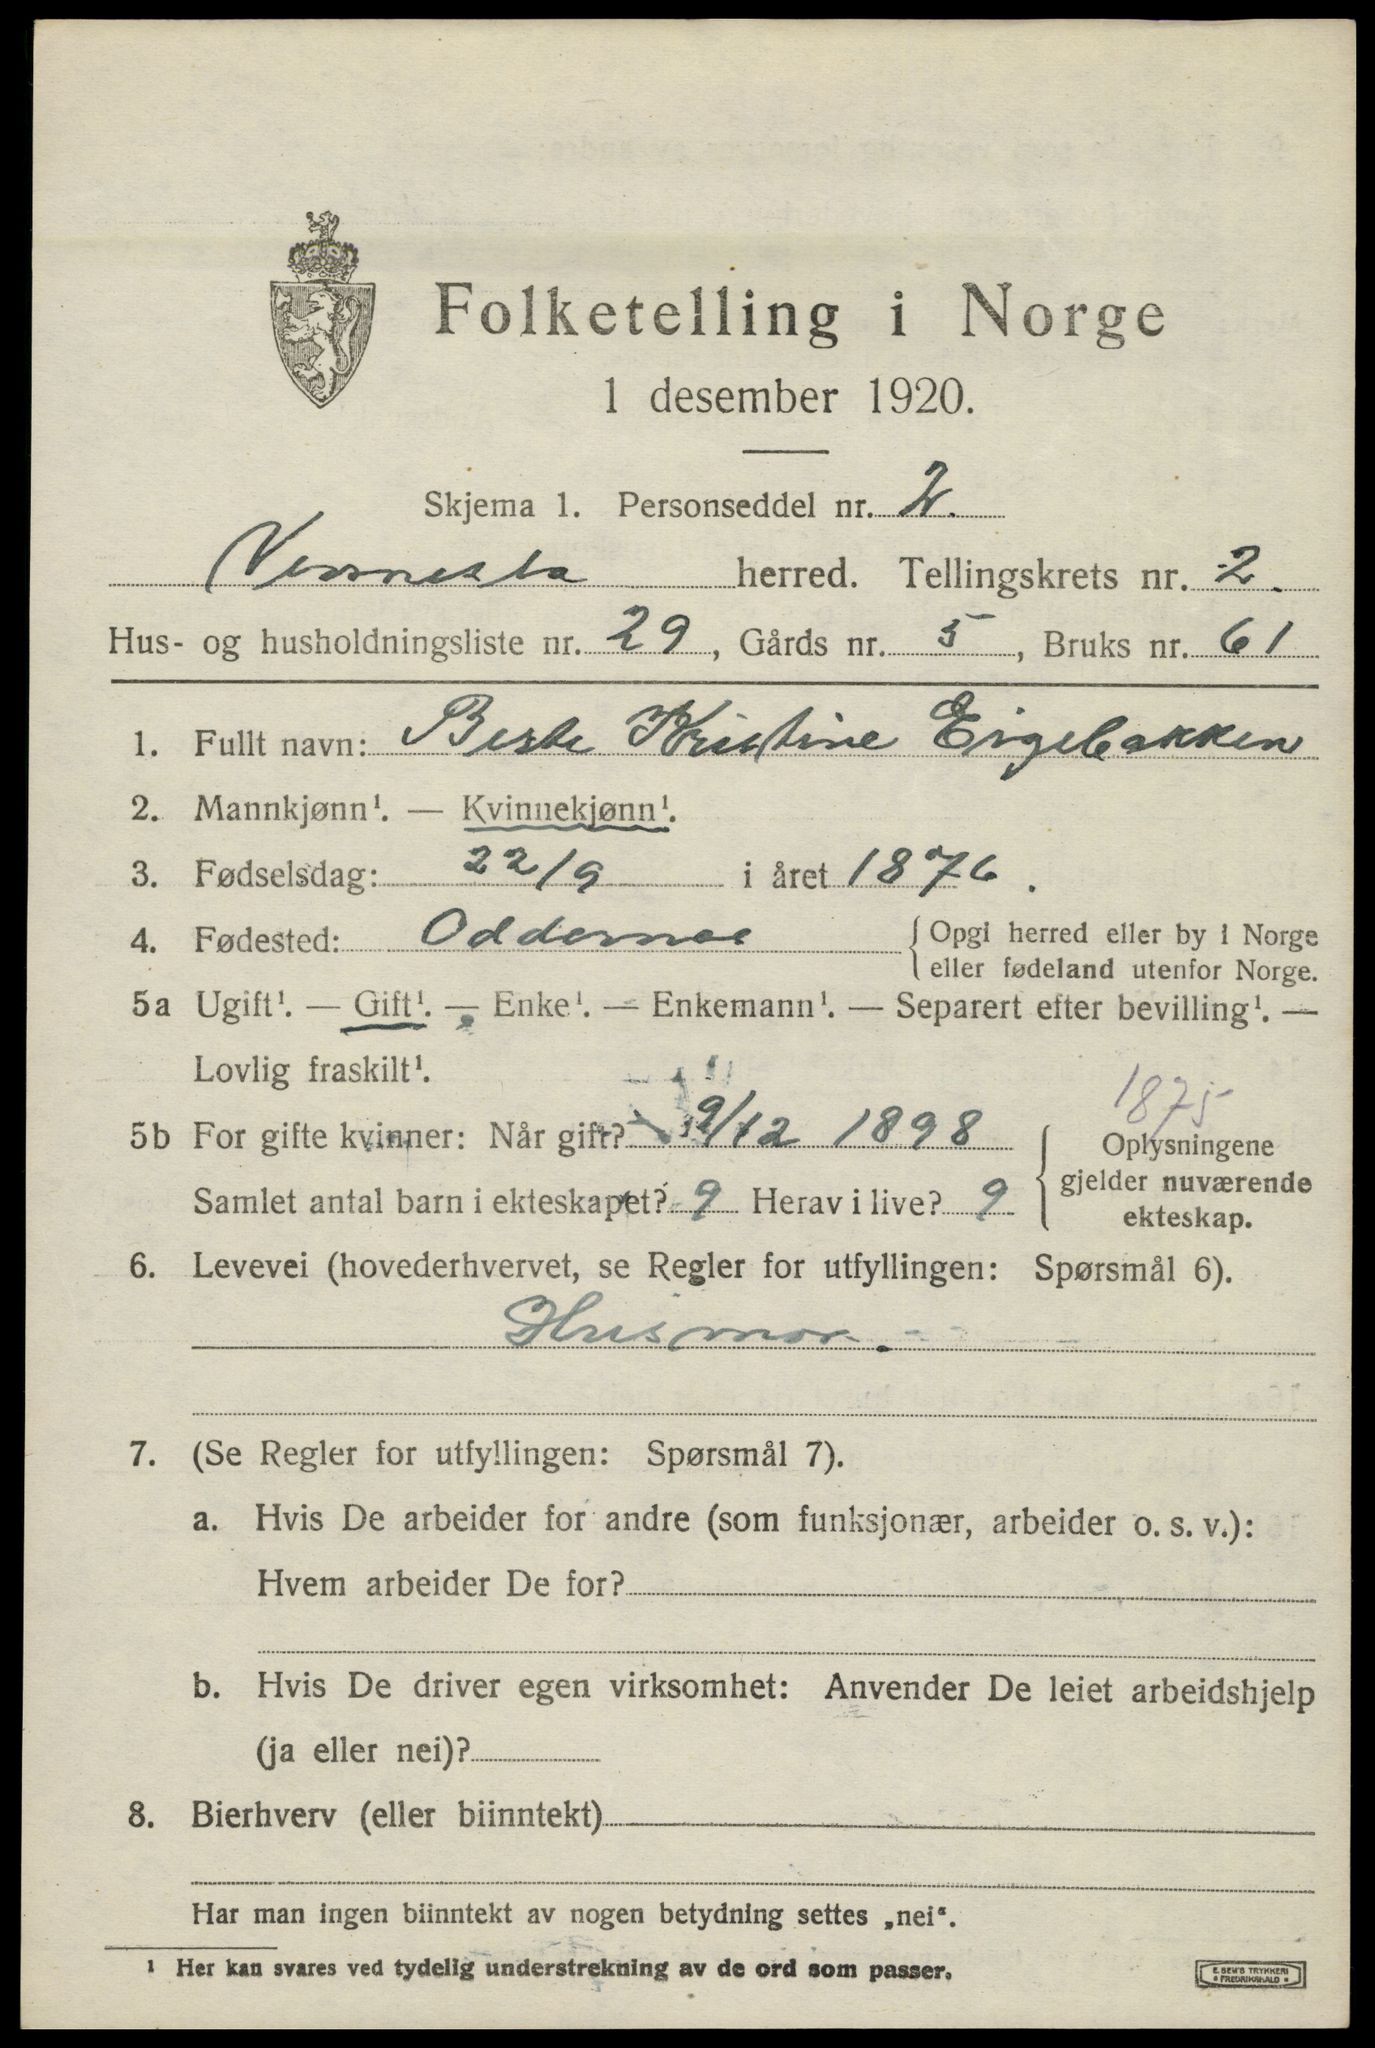 Folketelling i Norge
1 desember 1920.
Skjema 1. Personseddel nr. 2.
Vennesla herred. Tellingskrets nr. 2.
Hus- og husholdningsliste nr. 29, Gårds nr. 5, Bruks nr. 61
1. Fullt navn: Kristine Eigebakken
2. Mannkjønn¹. — Kvinnekjønn¹.
3. Fødselsdag: 22/9 i året 1876.
4. Fødested: Oddernes { Opgi herred eller by i Norge
eller fødeland utenfor Norge.
5a Ugift¹. — Gift¹. — Enke¹. — Enkemann¹. — Separert efter bevilling¹. —
Lovlig fraskilt¹.
1875
5b For gifte kvinner: Når gift? 9/12 1898 { Oplysningene
gjelder nuværende
ekteskap.
Samlet antal barn i ekteskapet? 9 Herav i live? 9
6. Levevei (hovederhvervet, se Regler for utfyllingen: Spørsmål 6).
Husmor.
7. (Se Regler for utfyllingen: Spørsmål 7).
a. Hvis De arbeider for andre (som funksjonær, arbeider o. s. v.):
Hvem arbeider De for?
b. Hvis De driver egen virksomhet: Anvender De leiet arbeidshjelp
(ja eller nei)?
8. Bierhverv (eller biinntekt)
Har man ingen biinntekt av nogen betydning settes „nei“.
¹ Her kan svares ved tydelig understrekning av de ord som passer.
E. SEM'S TRYKKERI
FREDRIKSHALD